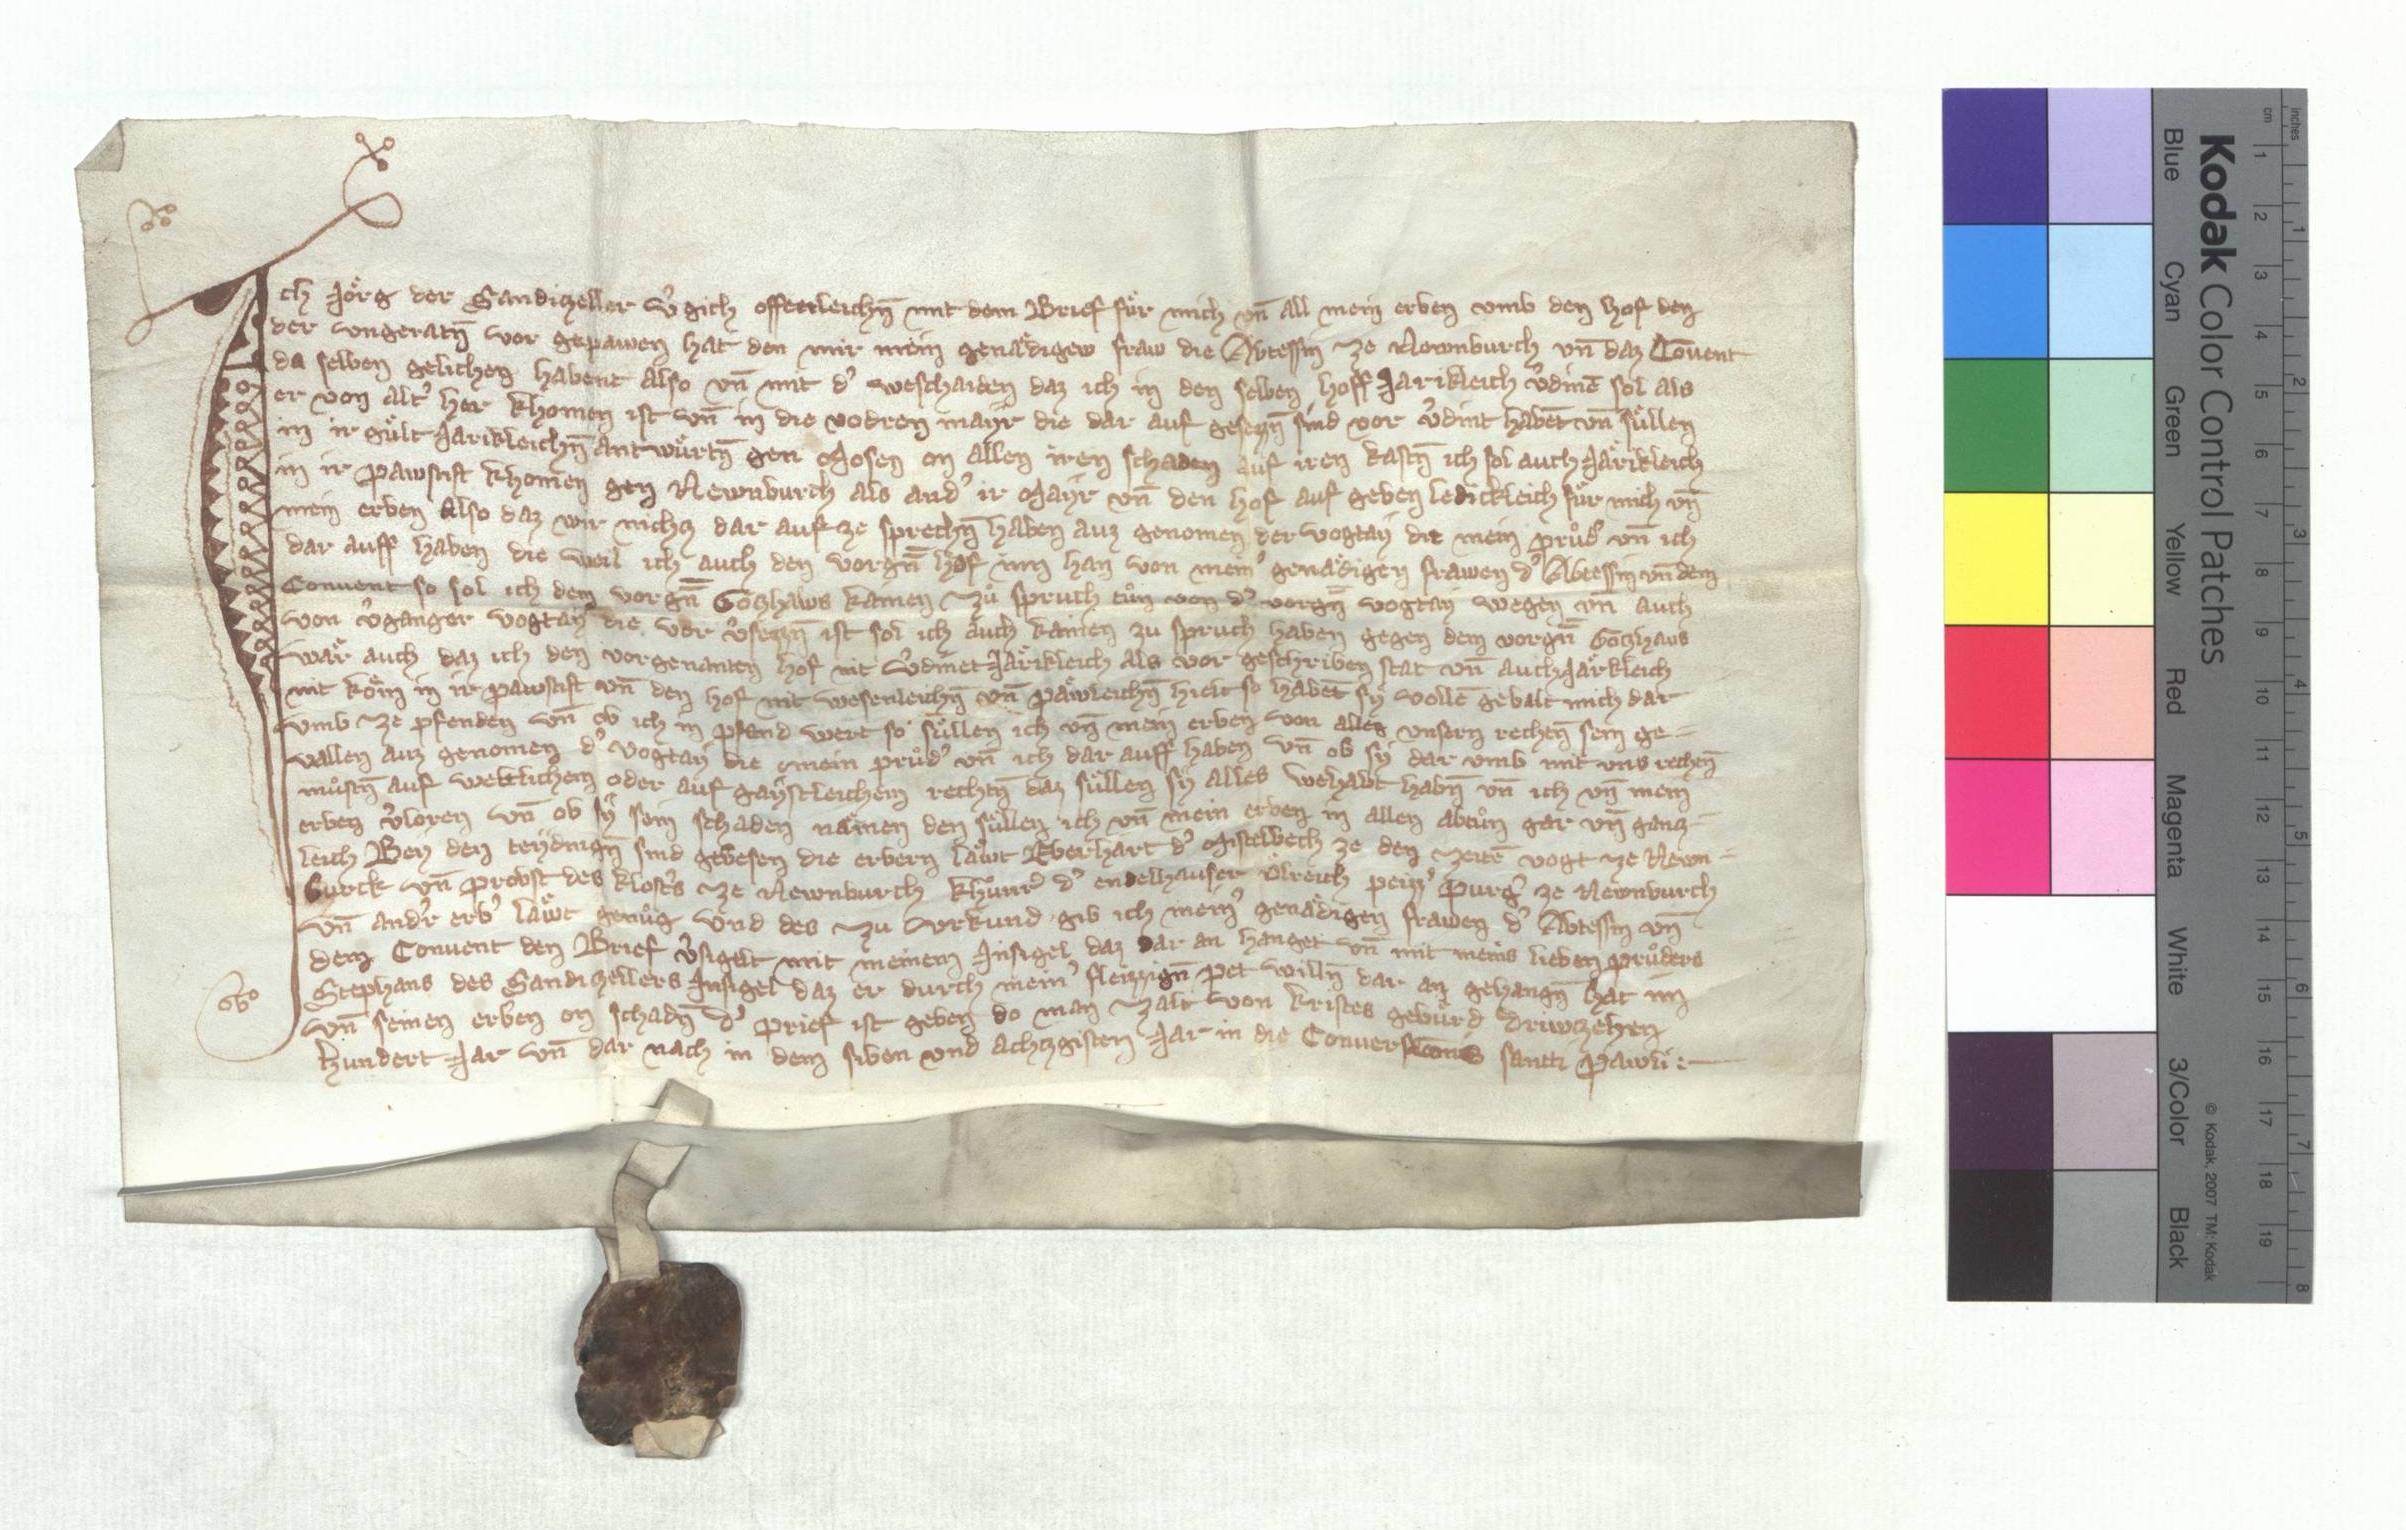 Ich Jörg der Sandizeller v̾gich offenleichn̄ mit dem Brief für mich vn̄ all mein erben vmb den hof den
der vngeratn̄ vor gepawen hat den mir mein genädigew fraw die Abtessin ze Newnburch vn̄ daz Couent
da selben gelichen habent Also vn̄ mit d̾ weschaiden daz ich in den selben hoff Jarikleich v̾dinē sol als
er von alt̾ her khomen ist vn̄ in die vodren mayr die dar auf gesezzn̄ sind vor v̾dint habēt vn̄ süllen
in ir gült Jarikleichn̄ antwürtn̄ gen Mosen on allen iren schaden auf iren kastn̄ ich sol auch Järikleich
in ir pawstift khomen gen Newnburch als and̾ ir Mayr vn̄ den hof auf geben ledickleich für mich vn̄
mein erben Also daz wir nichz dar auf ze sprechn̄ haben auz genomen der vogtay die mein průd̾ vn̄ ich
dar auff haben die weil ich auch den vorgn̄ hof inn han von mein̾ genädigen frawen d̾ Abtessin vn̄ dem
Conuent so sol ich dem vorgn̄ Gotzhaws kainen zů spruch tůn von d̾ vorgn̄ vogtay wegen vn̄ auch
von v̾ganger vogtay die vor v̾sezzn̄ ist sol ich auch kainen zu spruch haben gegen dem vorgn̄ Gotzhaus
wär auch daz ich den vorgenanten hof nit v̾dinet Järikleich als vor geschriben stat vn̄ auch Järkleich
nit köm in ir pawstift vn̄ den hof nit wesenleichn̄ vn̄ päwleichn̄ hielt so habēt sy vollē gebalt mich dar
vmb ze pfenden vn̄ ob ich in pfend wert so süllen ich vn̄ mein erben von alles vnsern rechen̄ sein ge=
vallen auz genomen d̾ vogtay die mein průd̾ vn̄ ich dar auff haben vn̄ ob sy dar vmb mit vns rechtn̄
můstn̄ auf weltlichem oder auf gaystleichem rechtn̄ daz süllen sy alles wehabt habn̄ vn̄ ich vn̄ mein
erben v̾loren vn̄ ob sy sein schaden nämen den süllen ich vn̄ mein erben in allen abtůn gar vn̄ gantz=
leich Bey den teydingn̄ sind gewesen die erbern läwt Eberhart d̾ Mistelbech ze den zeitē vogt ze Newn=
burck vn̄ probst des klost̾s ze Newnburch khünr̾ d̾ endelhauser ůlreich peizz̾ purg̾ ze Newnburch
vn̄ and̾r erb̾ läwt genůg vnd des zu vrkund gib ich mein̾ genädigen frawen d̾ Abtessin vn̄
dem Conuent den Brief v̾sigelt mit meinem Insigel daz dar an hanget vn̄ mit meins lieben průders
Stephans des Sandizellers Insigel daz er durch mein̾ fleizzign̄ pet willn̄ dar an gehangn̄ hat im
vn̄ seinen erben on schadn̄ d̾ prief ist geben do man zalt von kristes gebürd driwzehen
hundert Jar vn̄ dar nach in dem siben vnd achtzgisten Jar in die Conuersionis sancti Pawli :-
Kodak Color Control Patches
Blue Cyan Green Yellow Red Magenta White 3/Color Black
© Kodak, 2007 TM: Kodak
cm 1 2 3 4 5 6 7 8 9 10 11 12 13 14 15 16 17 18 19
inches 1 2 3 4 5 6 7 8